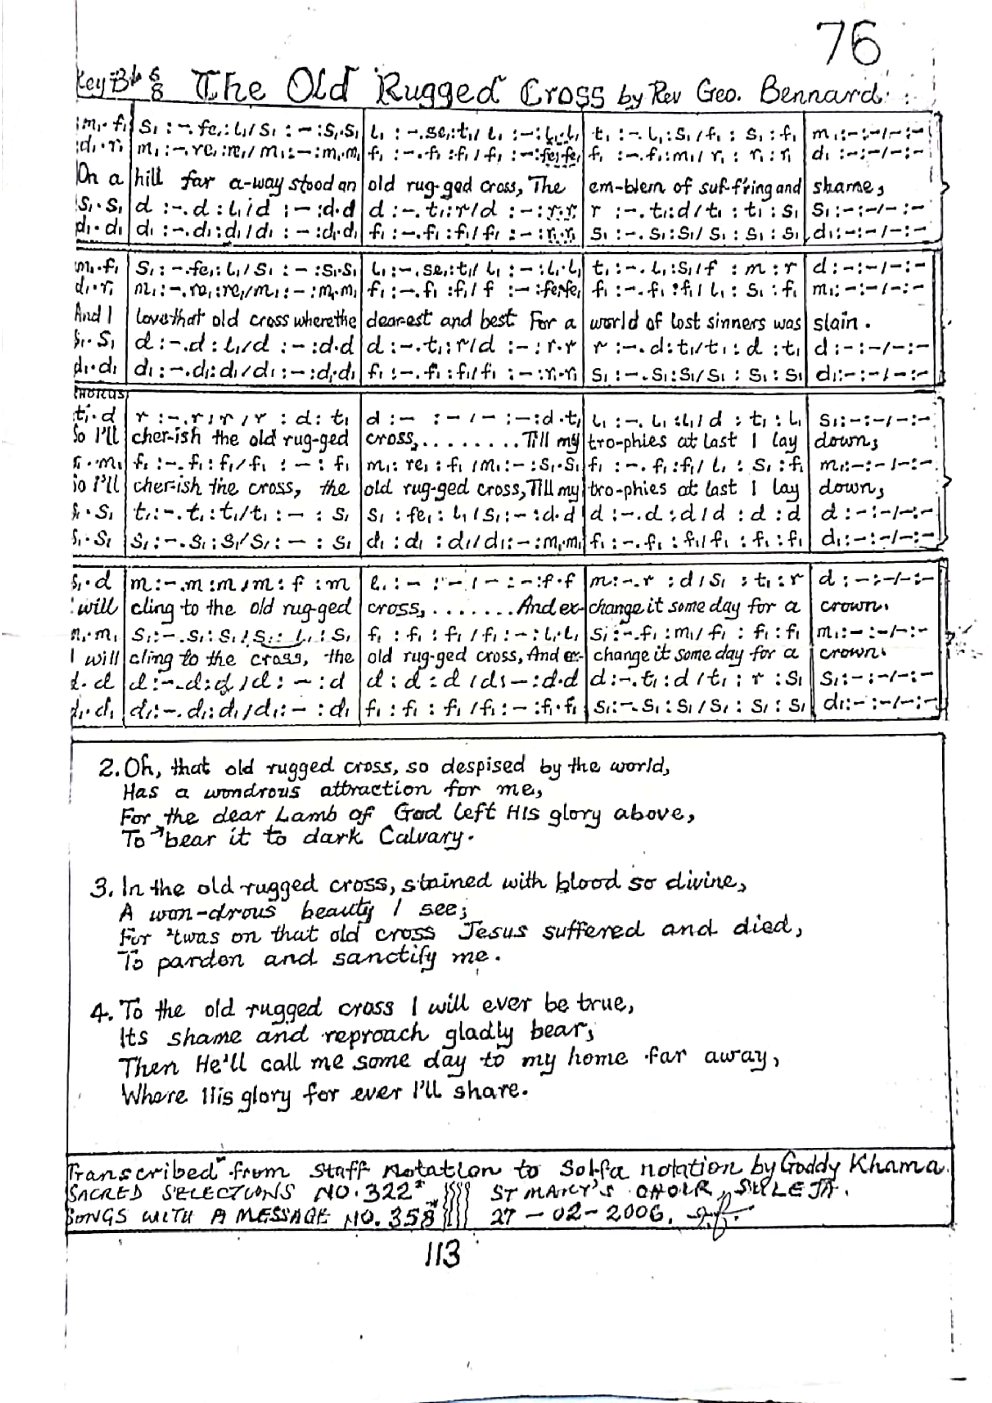 76
Key B♭ 6/8 The Old Rugged Cross by Rev Geo. Bennard
:m₁.f₁ | s₁ :-.fe₁:l₁/s₁ : - :s₁.s₁ | l₁ :-.se₁:t₁/ l₁ :-:l₁.l₁ | t₁ :-.l₁:s₁/f₁ : s₁ :f₁ | m₁:-:-/-:-
:d₁.r₁ | m₁:-.re₁:re₁/m₁:-:m₁.m₁ | f₁ :-.f₁ :f₁/f₁ :-:fe₁.fe₁ | f₁ :-.f₁:m₁/ r₁ : r₁:r₁ | d₁ :-:-/-:-
On a | hill far a-way stood an | old rug-ged cross, The | em-blem of suf-f'ring and | shame;
s₁.s₁ | d :-.d :l₁/d :-:d.d | d :-.t₁:r/d :-:r.r | r :-.t₁:d/t₁ : t₁ : s₁ | s₁:-:-/-:-
d₁.d₁ | d₁ :-.d₁:d₁/d₁ :-:d₁.d₁ | f₁ :-.f₁ :f₁/f₁ :-:r₁.r₁ | s₁ :-.s₁:s₁/ s₁ : s₁ : s₁ | d₁:-:-/-:-
m₁.f₁ | s₁ :-.fe₁:l₁/s₁ :-:s₁.s₁ | l₁:-.se₁:t₁/ l₁ :-:l₁.l₁ | t₁ :-.l₁:s₁/f : m : r | d :-:-/-:-
d₁.r₁ | m₁:-.re₁:re₁/m₁:-:m₁.m₁ | f₁:-.f₁ :f₁/f :-:fe₁.fe₁ | f₁ :-.f₁ :f₁/ l₁ : s₁ :f₁ | m₁:-:-/-:-
And I | love that old cross where the | dear-est and best For a | world of lost sinners was | slain.
s₁.s₁ | d :-.d :l₁/d :-:d.d | d :-.t₁:r/d :-:r.r | r :-.d:t₁/t₁ : d :t₁ | d :-:-/-:-
d₁.d₁ | d₁ :-.d₁:d₁/d₁ :-:d₁.d₁ | f₁ :-.f₁ :f₁/f₁ :-:r₁.r₁ | s₁ :-.s₁:s₁/s₁ : s₁ : s₁ | d₁:-:-/-:-
CHORUS
t₁.d | r :-.r:r/r : d: t₁ | d :- :-/-:-:d.t₁ | l₁ :-.l₁:l₁/d : t₁ : l₁ | s₁:-:-/-:-
So I'll | cher-ish the old rug-ged | cross,........Till my | tro-phies at last I lay | down;
r₁.m₁ | f₁ :-.f₁:f₁/f₁ :-: f₁ | m₁: re₁ : f₁/m₁:-:s₁.s₁ | f₁ :-.f₁:f₁/ l₁ : s₁ :f₁ | m₁:-:-/-:-
So I'll | cher-ish the cross, the | old rug-ged cross, Till my | tro-phies at last I lay | down;
s₁.s₁ | t₁:-.t₁:t₁/t₁ :-: s₁ | s₁ : fe₁: l₁/s₁:-:d.d | d :-.d :d/d : d : d | d :-:-/-:-
s₁.s₁ | s₁:-.s₁:s₁/s₁ :-: s₁ | d₁ :d₁ : d₁/d₁:-:m₁.m₁ | f₁ :-.f₁ : f₁/ f₁ : f₁ : f₁ | d₁:-:-/-:-
s₁.d | m:-.m :m/m: f :m | l₁ :- :-/-:-:f.f | m:-.r :d/s₁ : t₁:r | d :-:-/-:-
I will | cling to the old rug-ged | cross,.......And ex- | change it some day for a | crown.
m₁.m₁ | s₁:-.s₁: s₁/s₁: l₁: s₁ | f₁ : f₁ : f₁/f₁:-:l₁.l₁ | s₁:-.f₁: m₁/f₁ : f₁ :f₁ | m₁:-:-/-:-
I will | cling to the cross, the | old rug-ged cross, And ex- | change it some day for a | crown.
d.d | d:-.d:d/d:-:d | d : d : d/d:-:d.d | d:-.t₁:d/t₁ : r :s₁ | s₁:-:-/-:-
d₁.d₁ | d₁:-.d₁:d₁/d₁:-:d₁ | f₁ : f₁ : f₁/f₁:-:f₁.f₁ | s₁:-.s₁:s₁/s₁ : s₁ : s₁ | d₁:-:-/-:-
2. Oh, that old rugged cross, so despised by the world,
Has a wondrous attraction for me,
For the dear Lamb of God left His glory above,
To bear it to dark Calvary.
3. In the old rugged cross, stained with blood so divine,
A won-drous beauty I see;
For 'twas on that old cross Jesus suffered and died,
To pardon and sanctify me.
4. To the old rugged cross I will ever be true,
Its shame and reproach gladly bear;
Then He'll call me some day to my home far away,
Where His glory for ever I'll share.
Transcribed from Staff Notation to Solfa notation by Goddy Khama.
SACRED SELECTIONS NO. 322 ST MARY'S CHOIR, SULEJA.
SONGS WITH A MESSAGE NO. 358 27-02-2006.
113